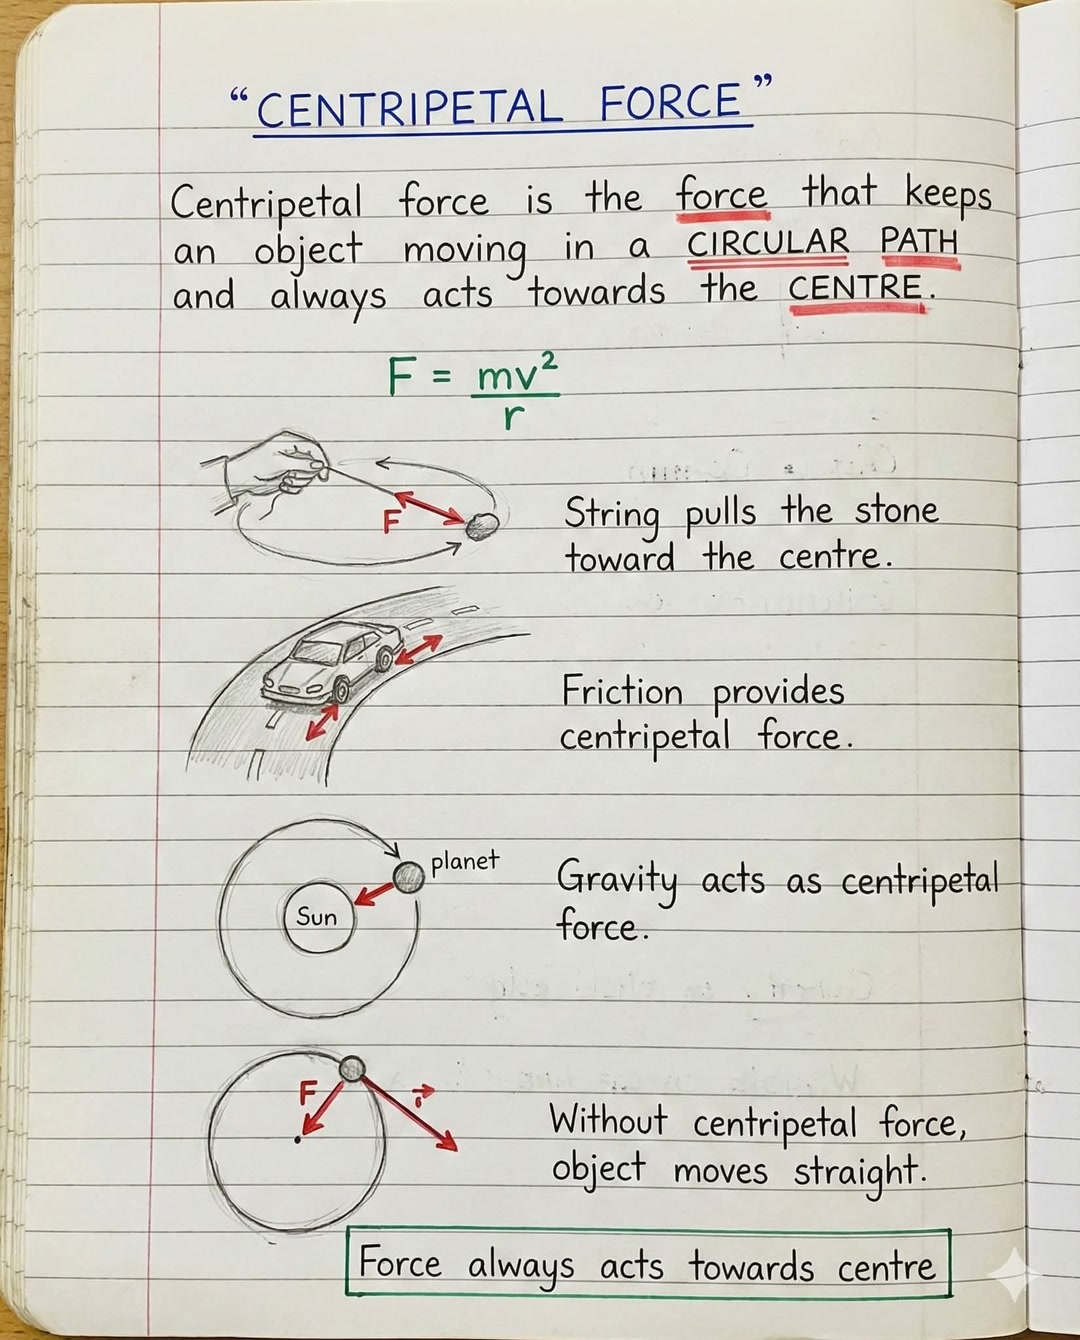 “CENTRIPETAL FORCE”
Centripetal force is the force that keeps
an object moving in a CIRCULAR PATH
and always acts towards the CENTRE.
F = mv²
r
F
String pulls the stone
toward the centre.
Friction provides
centripetal force.
planet
Sun
Gravity acts as centripetal
force.
F
Without centripetal force,
object moves straight.
Force always acts towards centre